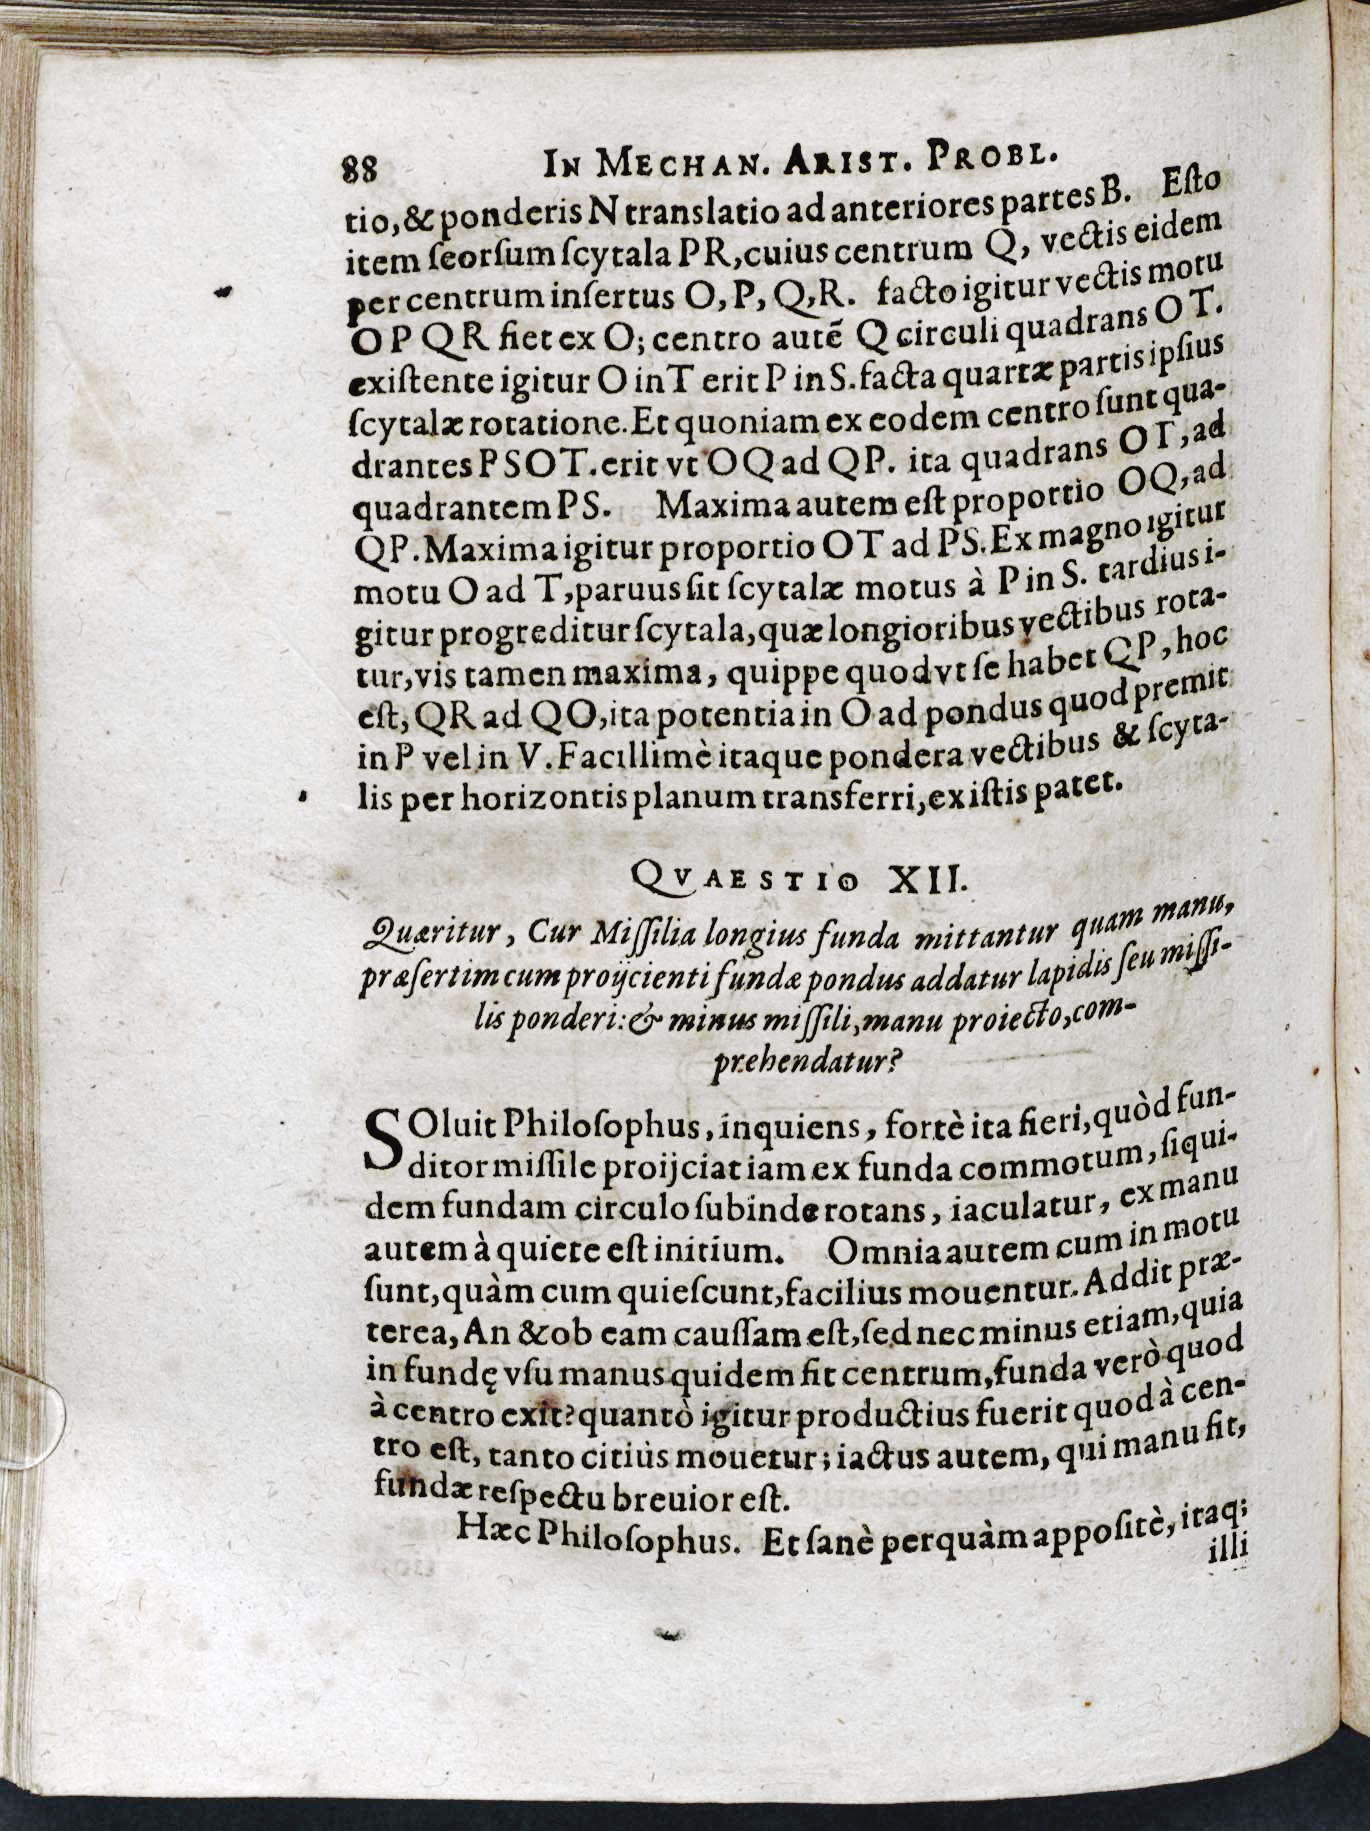 88 IN MECHAN. ARIST. PROBL.
tio, & ponderis N translatio ad anteriores partes B. Eſto
item ſeorſum ſcytala PR, cuius centrum Q, vectis eidem
per centrum inſertus O, P, Q, R. facto igitur vectis motu
O P Q R fiet ex O; centro autẽ Q circuli quadrans O T.
exiſtente igitur O in T erit P in S. facta quartæ partis ipſius
ſcytalæ rotatione. Et quoniam ex eodem centro ſunt qua-
drantes P S O T. erit vt O Q ad Q P. ita quadrans O T, ad
quadrantem P S. Maxima autem eſt proportio OQ, ad
QP. Maxima igitur proportio O T ad PS. Ex magno igitur
motu O ad T, paruus fit ſcytalæ motus à P in S. tardius i-
gitur progreditur ſcytala, quæ longioribus vectibus rota-
tur, vis tamen maxima, quippe quod vt ſe habet QP, hoc
eſt, QR ad QO, ita potentia in O ad pondus quod premit
in P vel in V. Facillimè itaque pondera vectibus & ſcyta-
lis per horizontis planum transferri, ex iſtis patet.
QVAESTIO XII.
Quæritur, Cur Miſſilia longius funda mittantur quam manu,
præſertim cum proijcienti fundæ pondus addatur lapidis ſeu miſſi-
lis ponderi: & minus miſſili, manu proiecto, com-
prehendatur?
SOluit Philoſophus, inquiens, fortè ita fieri, quòd fun-
ditor miſſile proijciat iam ex funda commotum, ſiqui-
dem fundam circulo ſubinde rotans, iaculatur, ex manu
autem à quiete eſt initium. Omnia autem cum in motu
ſunt, quàm cum quieſcunt, facilius mouentur. Addit præ-
terea, An & ob eam cauſſam eſt, ſed nec minus etiam, quia
in fundę vſu manus quidem fit centrum, funda verò quod
à centro exit? quantò igitur productius fuerit quod à cen-
tro eſt, tanto citiùs mouetur; iactus autem, qui manu fit,
fundæ reſpectu breuior eſt.
Hæc Philoſophus. Et ſanè perquàm appoſitè, itaq;
illi